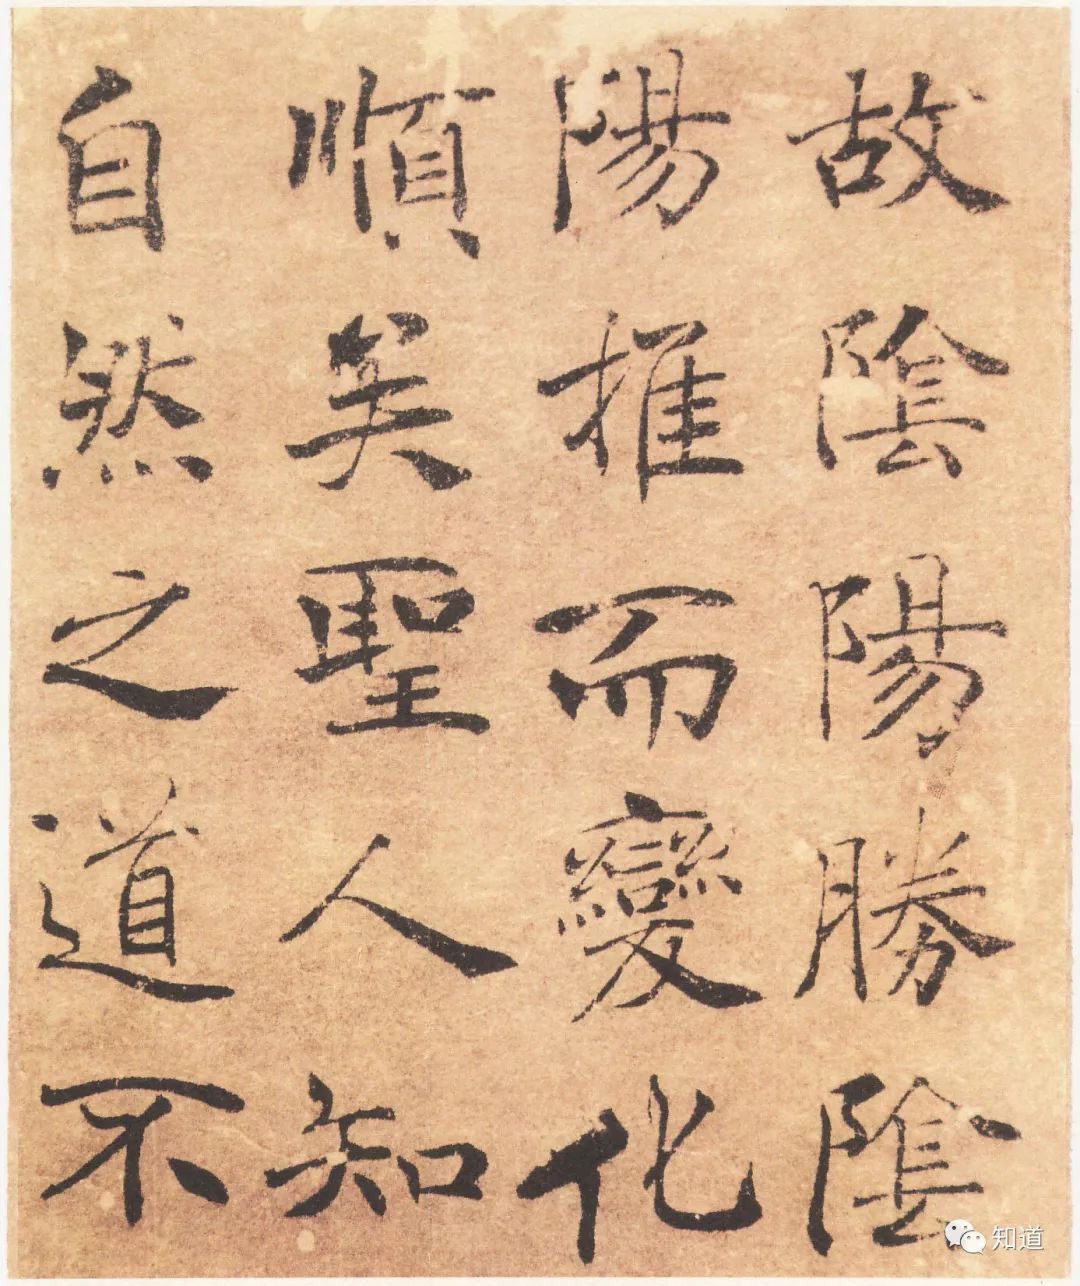 故陰陽勝陰
陽推而變化
順矣聖人知
自然之道不
知道